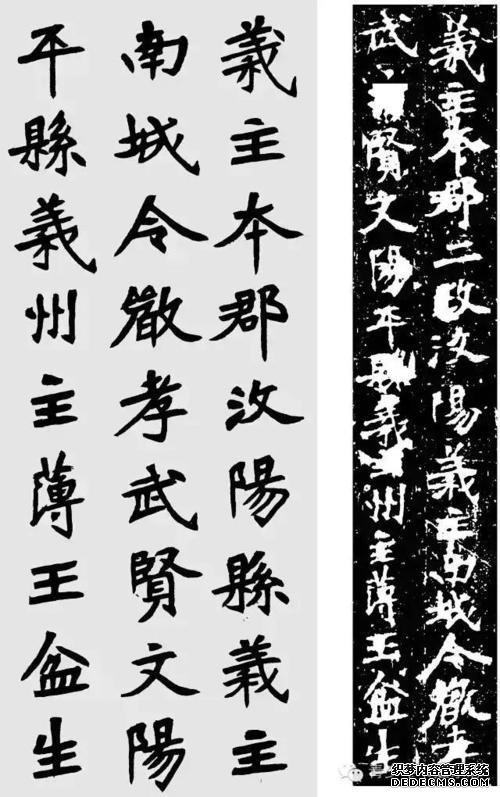 義主本郡汝陽縣義主
南城令徵孝武賢文陽
平縣義州主薄王盆生
義主本郡二政汝陽義主南城令徵孝
武賢文陽平縣義主州主薄王盆生
织梦内容管理系统
DEDECMS.COM